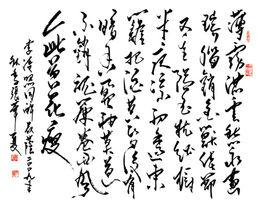 薄霧濃雲愁永晝
瑞腦銷金獸佳節
又重陽玉枕紗廚
半夜涼初透東
籬把酒黃昏後有
暗香盈袖莫道
不銷魂簾卷西風
人比黃花瘦
李清照詞醉花陰